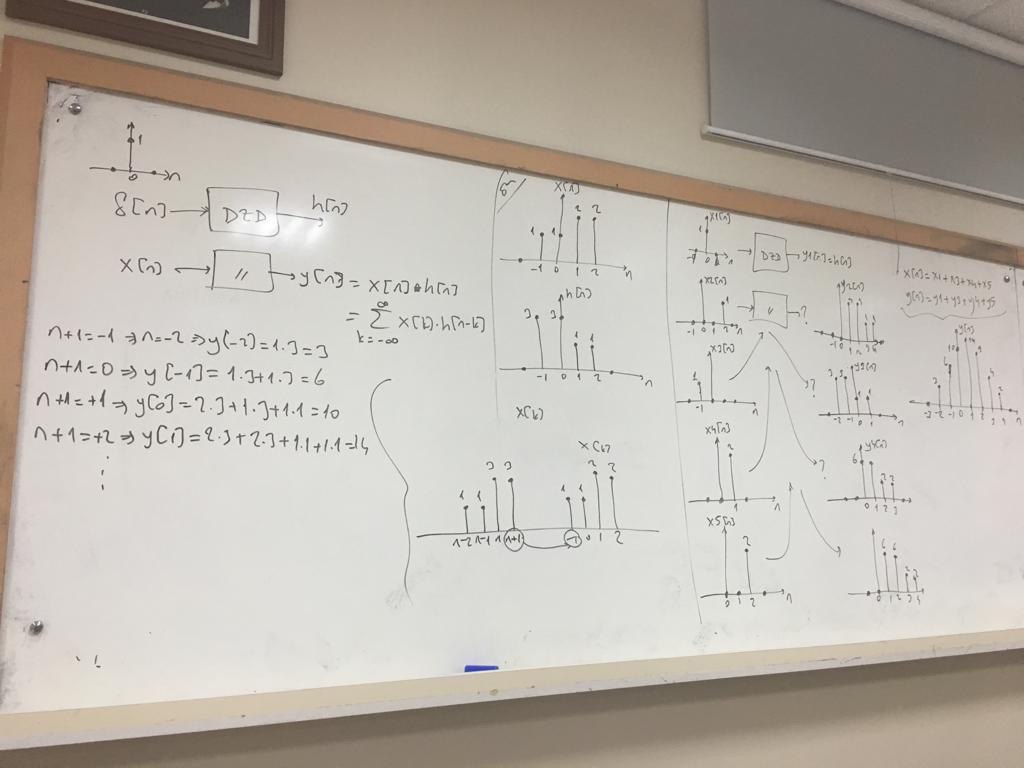 1
0 n
δ[n] DZD h[n]
x[n] // y[n] = x[n] * h[n]
= ∑ x[k]·h[n-k]
∞
k=-∞
n+1=-1 ⇒ n=-2 ⇒ y[-2]=1·3=3
n+1=0 ⇒ y[-1]=1·3+1·3=6
n+1=+1 ⇒ y[0]=2·3+1·3+1·1=10
n+1=+2 ⇒ y[1]=2·3+2·3+1·1+1·1=14
x[n]
1 1 2 2
-1 0 1 2 n
h[n]
3 3 1 1
-1 0 1 2 n
x[k]
x[k]
1 1 3 3 1 1 2 2
n-2 n-1 n n+1 -1 0 1 2
x1[n]
1
-1 0 n
DZD y1[n]=h[n]
x2[n]
1
-1 0 1 2 n
// ?
x3[n]
1
-1 n
?
x4[n]
2
1 n
?
x5[n]
2
0 1 2 n
y2[n]
-1 0 1 2 3 4
y3[n]
-2 -1 0 1
y4[n]
6 2 2
0 1 2 3
6 6 2 2
0 1 2 3 4
x[n]=x1+x3+x4+x5
y[n]=y1+y3+y4+y5
y[n]
3 6 10 14
-3 -2 -1 0 1 2 3 4 n